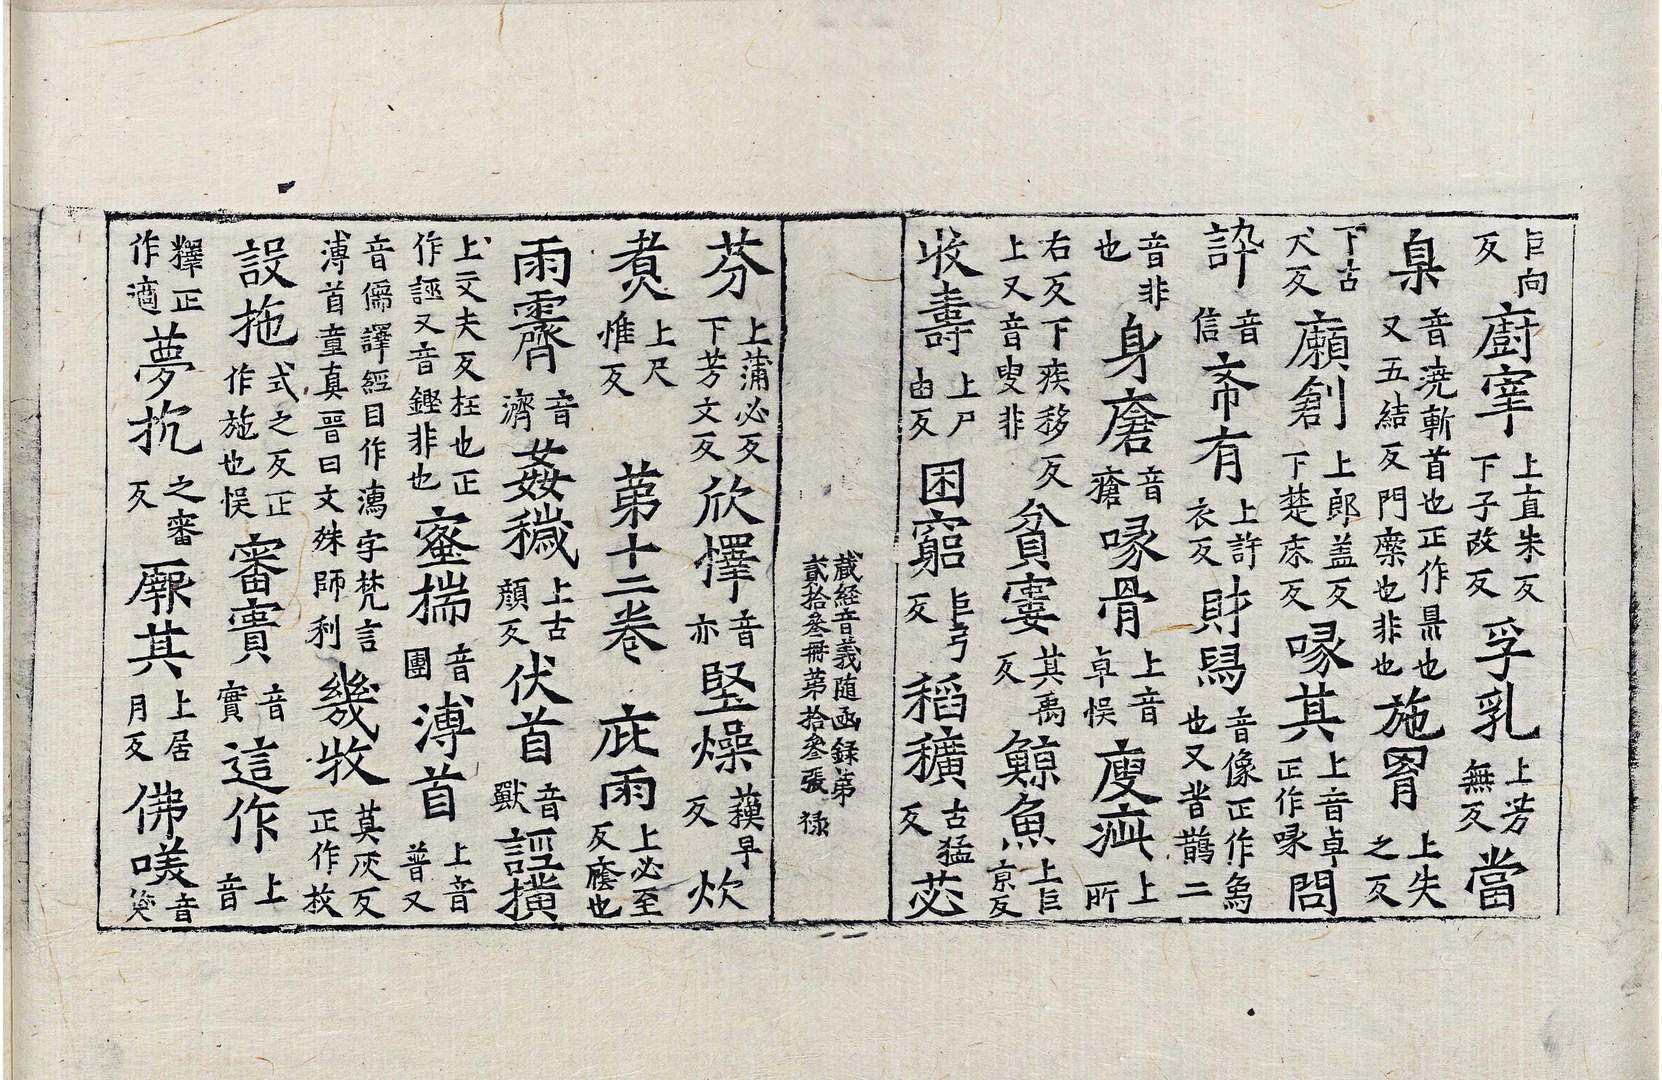 巨向反廚宰上直朱反下子改反孚乳上芳無反當
臬音澆斬首也正作鼎也又五結反門橜也非也施罥上失之反
下古犬反廟創上郎盖反下楚床反喙其上音卓正作啄問
誶音信希有上許衣反財舄音像正作象也又昔鵲二
音非也身瘡音瘡喙骨上音卓悮廋疵上所
右反下疾移反上又音叟非貧寠其禹反鯨魚上巨京反
收壽上尸由反困窮巨弓反稻穬古猛反苾
藏経音義随函録第貳拾叄冊第拾叄張 祿
芬上蒲必反下芳文反欣懌音亦堅燥蘓早反炊
煮上尺惟反 第十二卷 庇雨上必至反廕也
雨霽音濟姦穢上古顔反伏首音獸誣攩
上文夫反枉也正作誣又音鏗非也蜜揣音團溥首上音普又
音儒譯經目作濡字梵言溥首童真晉曰文殊師利幾牧莫灰反正作枚
設拖式之反正作施也悮審實音實這作上音
釋正作適夢抗之審反厥其上居月反佛嘆音笑